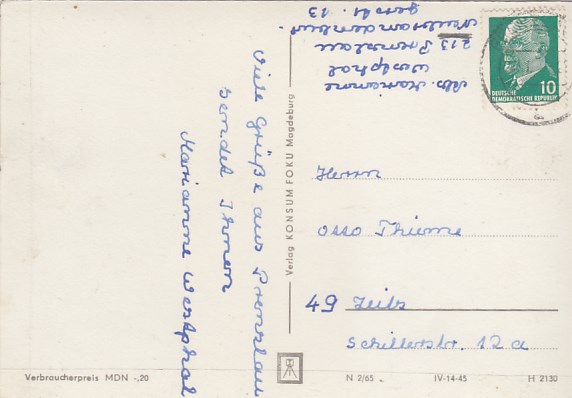 Viele Grüße aus Prenzlau
sendet Ihnen
Marianne Westphal
Verlag KONSUM FOKU Magdeburg
Abs. Marianne
Westphal
213 Prenzlau
13
10
DEUTSCHE
DEMOKRATISCHE REPUBLIK
Herrn
Otto Thieme
49 Zeitz
Schillerstr. 12 a
Verbraucherpreis MDN -,20
N 2/65
IV-14-45
H 2130